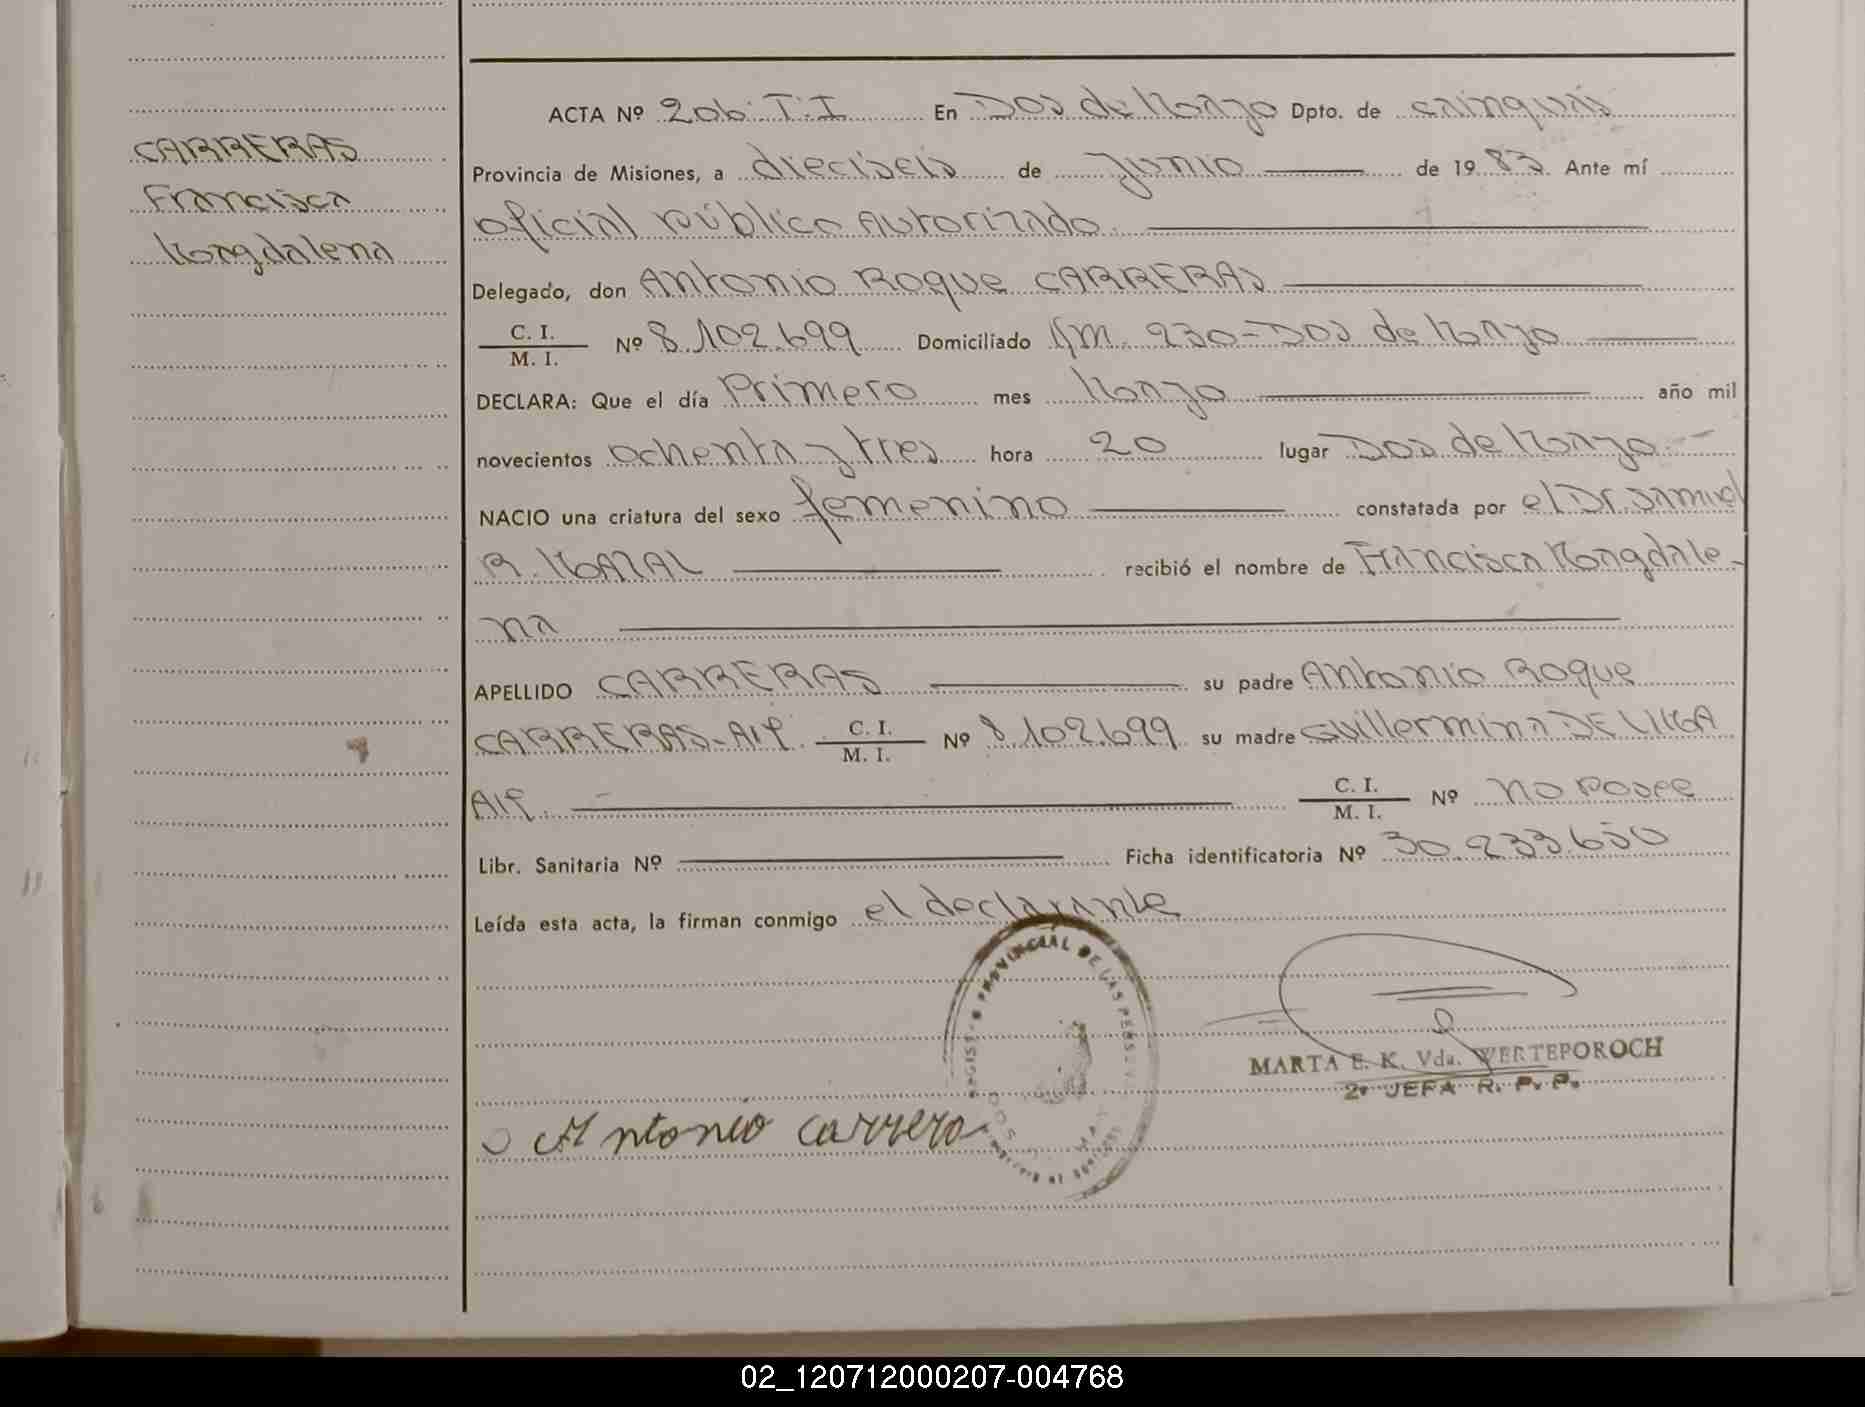 CARRERAS
Francisca
Magdalena
ACTA Nº 206 T.I En Dos de Mayo Dpto. de cainguás
Provincia de Misiones, a dieciseis de Junio de 1983. Ante mí
oficial público Autorizado
Delegado, don Antonio Roque CARRERAS
C. I.
M. I.
Nº 8.102.699 Domiciliado Km. 230-Dos de Mayo
DECLARA: Que el día Primero mes Mayo año mil
novecientos ochenta y tres hora 20 lugar Dos de Mayo.-
NACIO una criatura del sexo femenino constatada por el Dr. Samuel
R. MAZAL recibió el nombre de Francisca Magdale-
na
APELLIDO CARRERAS su padre Antonio Roque
CARRERAS-
C. I.
M. I.
Nº 8.102.699 su madre Guillermina DE LIMA
C. I.
M. I.
Nº no posee
Libr. Sanitaria Nº Ficha identificatoria Nº 30.233.650
Leída esta acta, la firman conmigo el declarante
PROVINCIAL DE LAS PERS
DOS MAY
MARTA E. K. Vda. WERTEPOROCH
2ª JEFA R. P. P.
Antonio Carrera
02_120712000207-004768